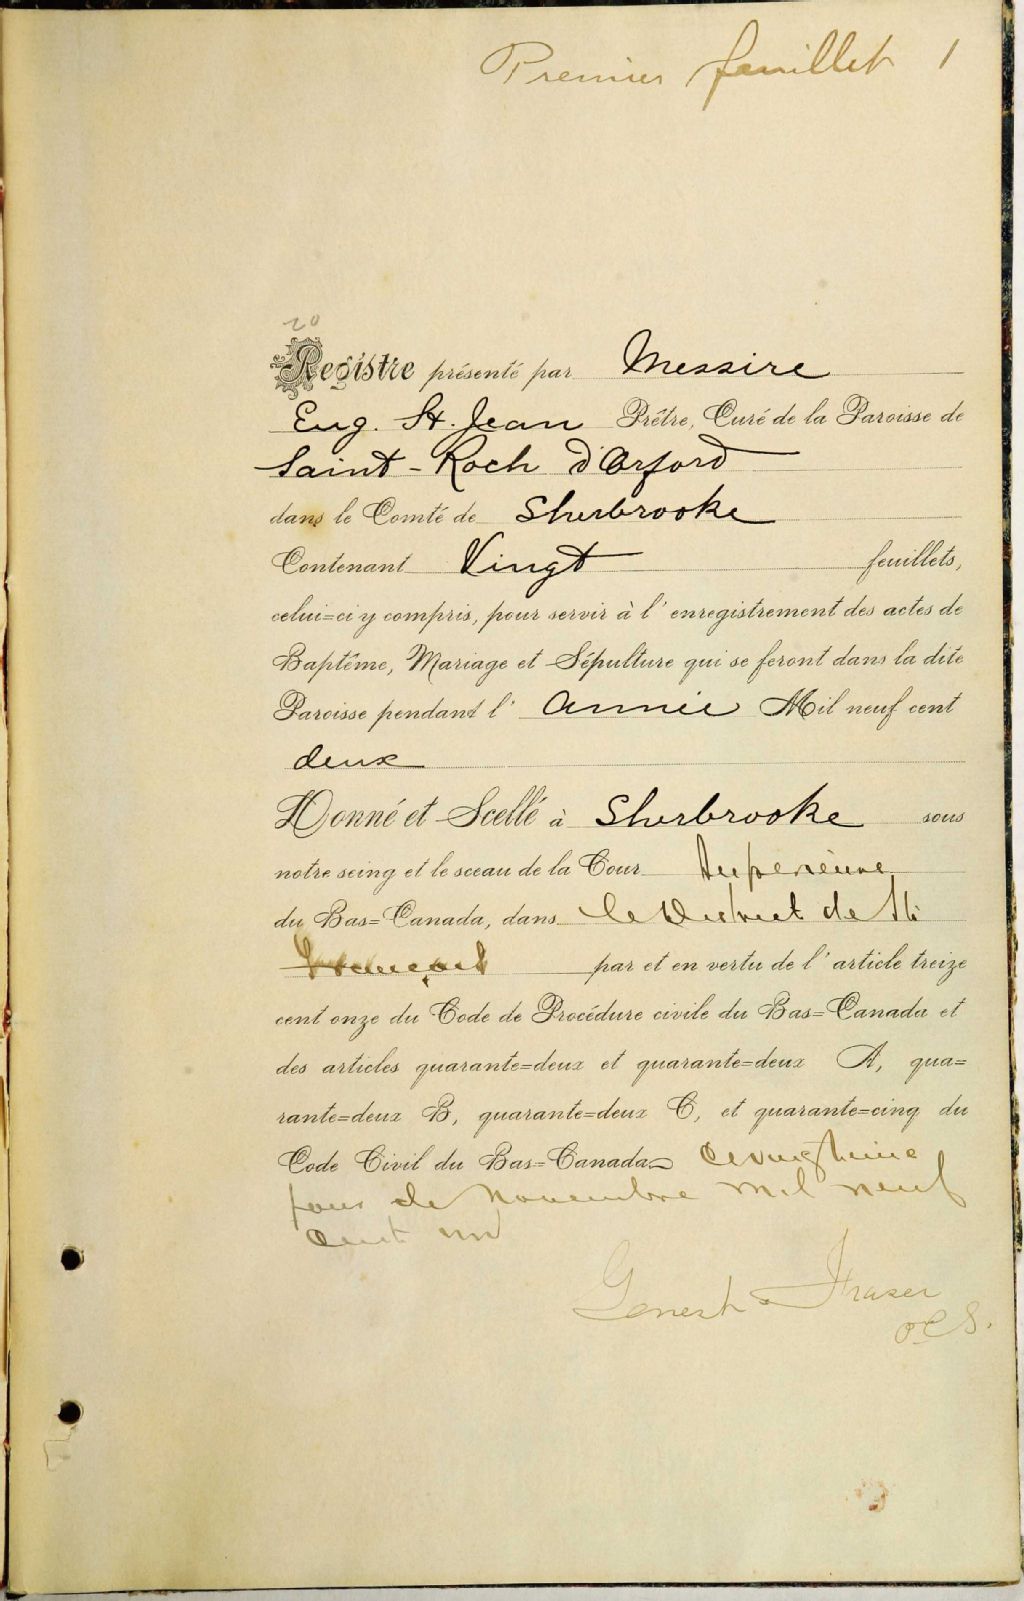 Premier feuillet 1
20
Registre présenté par Messire
Eug. St. Jean Prêtre, Curé de la Paroisse de
Saint-Roch d'Orford
dans le Comté de Sherbrooke
Contenant Vingt feuillets,
celui=ci y compris, pour servir à l'enregistrement des actes de
Baptême, Mariage et Sépulture qui se feront dans la dite
Paroisse pendant l'année Mil neuf cent
deux
Donné et Scellé à Sherbrooke sous
notre seing et le sceau de la Cour Supérieure
du Bas=Canada, dans le District de St
François par et en vertu de l'article treize
cent onze du Code de Procédure civile du Bas=Canada et
des articles quarante=deux et quarante=deux A, qua=
rante=deux B, quarante=deux C, et quarante=cinq du
Code Civil du Bas=Canada
jour de Novembre mil neuf
cent un
Genest & Fraser
PCS.